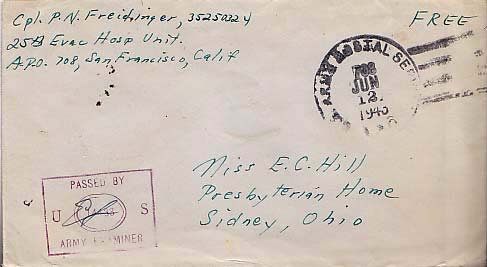 Cpl. P. N. Freidinger, 35250324
25th Evac Hosp Unit.
A.P.O. 708, San Francisco, Calif
FREE
ARMY POSTAL SER
708
JUN
12
194
Miss E. C. Hill
Presbyterian Home
Sidney, Ohio
PASSED BY
U S
ARMY EXAMINER